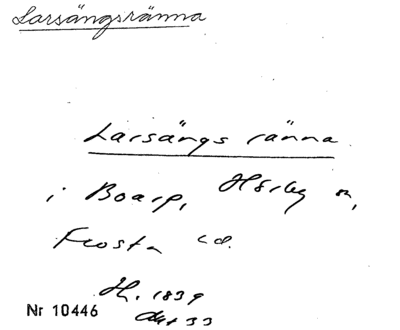 Larsängsränna
Larsängs ränna
i Boarp, Hörby sn,
Frosta hd.
H. 1839
akt 33
Nr 10446